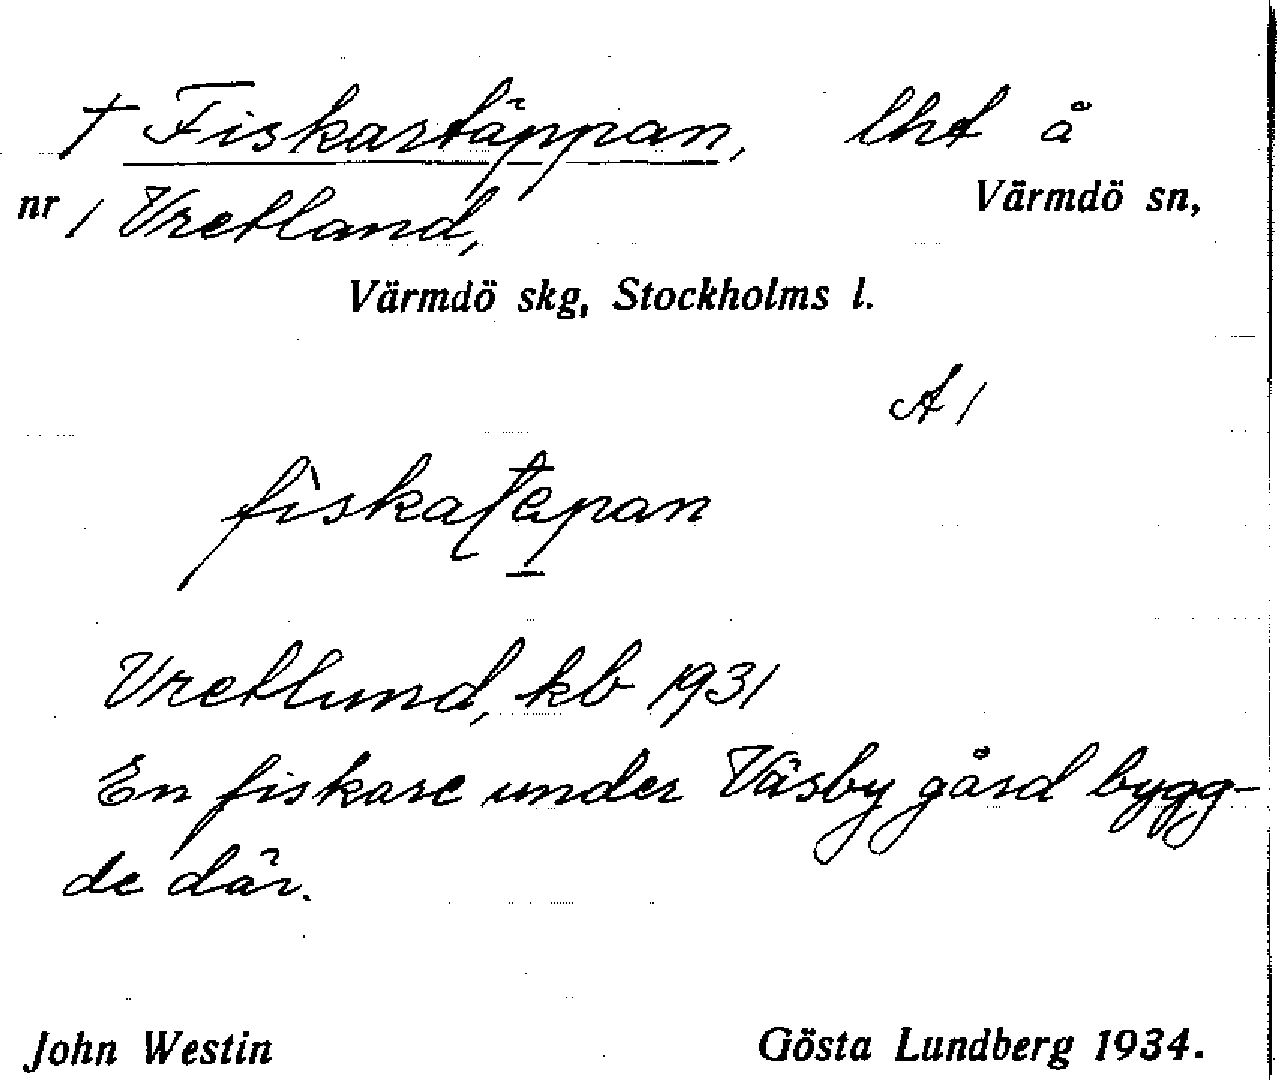 † Fiskartäppan, lht å
nr 1 Vretland, Värmdö sn,
Värmdö skg, Stockholms l.
A 1
Vretlund, kb 1931
En fiskare under Väsby gård bygg-
de där.
John Westin Gösta Lundberg 1934.